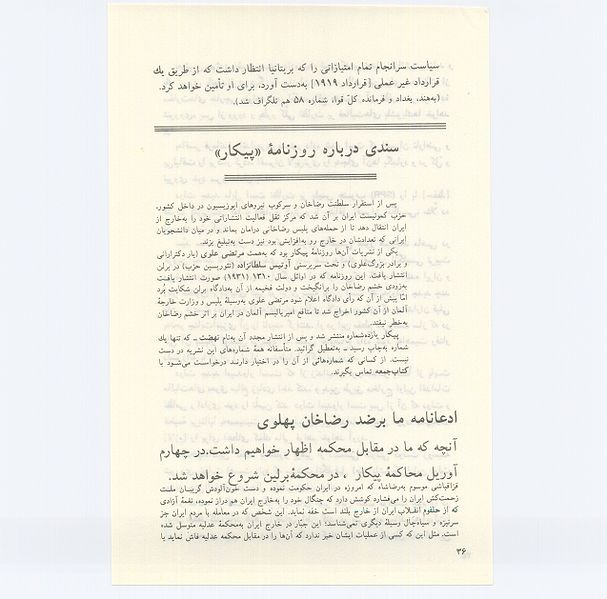 سیاست سرانجام تمام امتیازاتی را که بریتانیا انتظار داشت که از طریق یك
قرارداد غیر عملی [قرارداد ۱۹۱۹] به‌دست آورد، برای او تأمین خواهد کرد.
(به‌هند، بغداد و فرمانده کلّ قوا، شماره ۵۸ هم تلگراف شد).
سندی درباره روزنامهٔ «پیکار»
پس از استقرار سلطنت رضاخان و سرکوب نیروهای اپوزیسیون در داخل کشور،
حزب کمونیست ایران بر آن شد که مرکز ثقل فعالیت انتشاراتی خود را به‌خارج از
ایران انتقال دهد تا از حمله‌های پلیس رضاخانی درامان بماند و در میان دانشجویان
ایرانی که تعدادشان در خارج رو به‌افزایش بود نیز دست به‌تبلیغ بزند.
یکی از نشریات آن‌ها روزنامهٔ پیکار بود که به‌همت مرتضی علوی (یار دکترارانی
و برادر بزرگ‌علوی) و تحت سرپرستی آوتیس سلطانزاده (تئوریسین حزب) در برلن
انتشار یافت. این روزنامه که در اوائل سال ۱۳۱۰ (۱۹۳۱) صورت انتشار یافت
به‌زودی خشم رضاخان را برانگیخت و دولت فخیمه از آن به‌دادگاه برلن شکایت بُرد
امّا پیش از آن که رأی دادگاه اعلام شود مرتضی علوی به‌وسیلهٔ پلیس و وزارت خارجهٔ
آلمان از آن کشور اخراج شد تا منافع امپریالیسم آلمان در ایران بر اثر خشم رضاخان
به‌خطر نیفتد.
پیکار یازده‌شماره منتشر شد و پس از انتشار مجدد آن به‌نام نهضت ـ که تنها یك
شماره به‌چاپ رسید ـ به‌تعطیل گرائید. متأسفانه همهٔ شماره‌های این نشریه در دست
نیست. از کسانی که شماره‌هائی از آن را در اختیار دارند درخواست می‌شود با
کتاب‌جمعه تماس بگیرند.
ادعانامه ما برضد رضاخان پهلوی
آنچه که ما در مقابل محکمه اظهار خواهیم داشت.در چهارم
آوریل محاکمهٔ پیکار ، در محکمهٔ برلین شروع خواهد شد.
قزاقباشی موسوم به‌رضاشاه که امروزه در ایران حکومت نموده و دست خون‌آلودش گریبان ملت
زحمت‌کش ایران را می‌فشارد کوشش دارد که چنگال خود را به‌خارج ایران هم دراز نموده، نغمهٔ آزادی
که از حلقوم انقلاب ایران از خارج بلند است خفه نماید. این شخص که در معامله با مردم ایران جز
سرنیزه و سیاه‌چال وسیلهٔ دیگری نمی‌شناسد؛ این جبّار در خارج ایران به‌محکمهٔ عدلیه متوسل شده،
است. مثل این که کسی از عملیات ایشان خبر ندارد که آن‌ها را در مقابل محکمه عدلیه فاش نماید با
۳۶